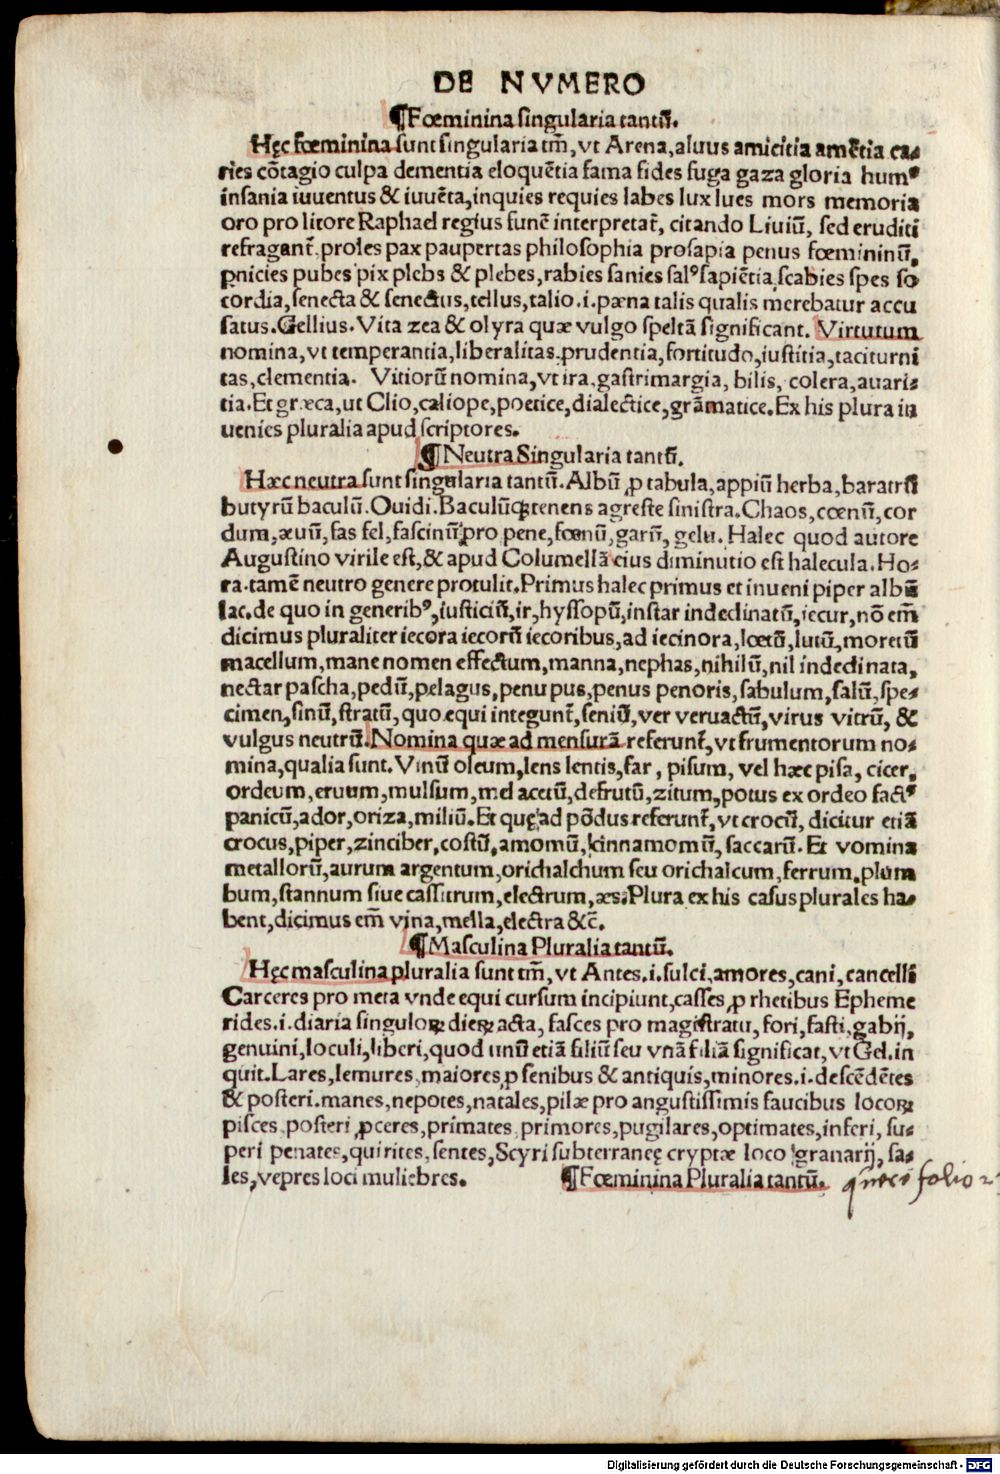 DE NVMERO
¶Fœminina singularia tantũ.
Hęc fœminina sunt singularia tm̃, vt Arena, aluus amicitia amẽtia ca-
ries cõtagio culpa dementia eloquẽtia fama fides fuga gaza gloria humꝰ
insania iuuentus & iuuẽta, inquies requies labes lux lues mors memoria
oro pro litore Raphael regius funẽ interpretat̃, citando Liuiũ, sed eruditi
refragant̃. proles pax paupertas philosophia prosapia penus fœmininũ,
ꝑnicies pubes pix plebs & plebes, rabies sanies salꝰ sapiẽtia scabies spes so
cordia, senecta & senectus, tellus, talio .i. pæna talis qualis merebatur accu
satus. Gellius. Vita zea & olyra quæ vulgo speltã significant. Virtutum
nomina, vt temperantia, liberalitas. prudentia, fortitudo, iustitia, taciturni
tas, clementia. Vitiorũ nomina, vt ira, gastrimargia, bilis, colera, auari-
tia. Et græca, ut Clio, caliope, poetice, dialectice, grãmatice. Ex his plura in
uenies pluralia apud scriptores.
¶ Neutra Singularia tantũ.
Hæc neutra sunt singularia tantũ. Albũ ꝓ tabula, appiũ herba, baratrũ
butyrũ baculũ. Ouidi. Baculũqꝫ tenens agreste sinistra. Chaos, cœnũ, cor
dum, æuũ, fas fel, fascinũ pro pene, fœnũ, garũ, gelu. Halec quod autore
Augustino virile est, & apud Columellã eius diminutio est halecula. Ho-
ra. tamẽ neutro genere protulit. Primus halec primus et inueni piper albũ
lac. de quo in generibꝰ, iusticiũ, ir, hyssopũ, instar indeclinatũ, iecur, nõ em̃
dicimus pluraliter iecora iecorũ iecoribus, ad iecinora, lœtũ, lutũ, moretũ
macellum, mane nomen effectum, manna, nephas, nihilũ, nil indeclinata,
nectar pascha, pedũ, pelagus, penu pus, penus penoris, sabulum, salũ, spe-
cimen, sinũ, stratũ, quo equi integunt̃, seniũ, ver veruactũ, virus vitrũ, &
vulgus neutrũ. Nomina quæ ad mensurã referunt̃, vt frumentorum no-
mina, qualia sunt. Vinũ oleum, lens lentis, far, pisum, vel hæc pisa, cicer,
ordeum, eruum, mulsum, mel acetũ, defrutũ, zitum, potus ex ordeo factꝰ
panicũ, ador, oriza, miliũ. Et quę ad põdus referunt̃, vt crocũ, dicitur etiã
crocus, piper, zinciber, costũ, amomũ, kinnamomũ, saccarũ. Et vomina
metallorũ, aurum argentum, orichalchum seu orichalcum, ferrum, plum
bum, stannum siue cassitrum, electrum, æs. Plura ex his casus plurales ha-
bent, dicimus em̃ vina, mella, electra &c̃.
¶Masculina Pluralia tantũ.
Hęc masculina pluralia sunt tm̃, vt Antes .i. sulci, amores, cani, cancelli
Carceres pro meta vnde equi cursum incipiunt, casses, ꝓ rhetibus Epheme
rides .i. diaria singuloꝝ dieꝝ acta, fasces pro magistratu, fori, fasti, gabij,
genuini, loculi, liberi, quod unũ etiã filiũ seu vnã filiã significat, vt Gel. in
quit. Lares, lemures, maiores, ꝓ senibus & antiquis, minores .i. descẽdẽtes
& posteri. manes, nepotes, natales, pilæ pro angustissimis faucibus locoꝝ
pisces, posteri ꝓceres, primates, primores, pugilares, optimates, inferi, su-
peri penates, quirites, sentes, Scyri subterraneę cryptæ loco granarij, sa-
les, vepres loci muliebres. ¶Fœminina Pluralia tantũ.
folio
Digitalisierung gefördert durch die Deutsche Forschungsgemeinschaft - DFG